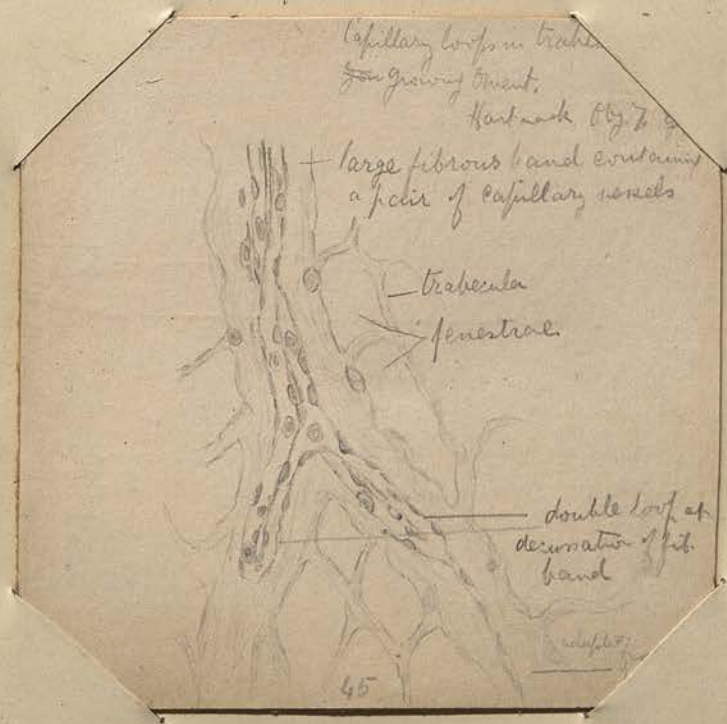 Capillary loops in
growing Oment.
Hartnack Obj. 7.
large fibrous band containing
a pair of capillary vessels
trabecula
fenestrae
double loop at
decussation of fib.
band
45